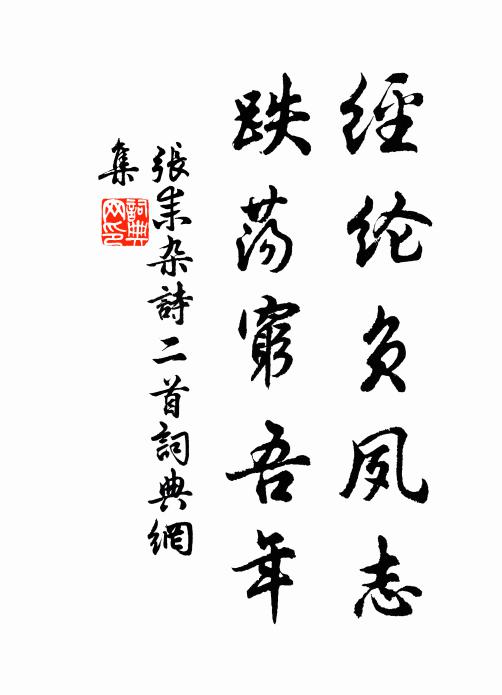 經纶負夙志
跌荡窮吾年
張耒杂詩二首詞典網
集
詞典
网印